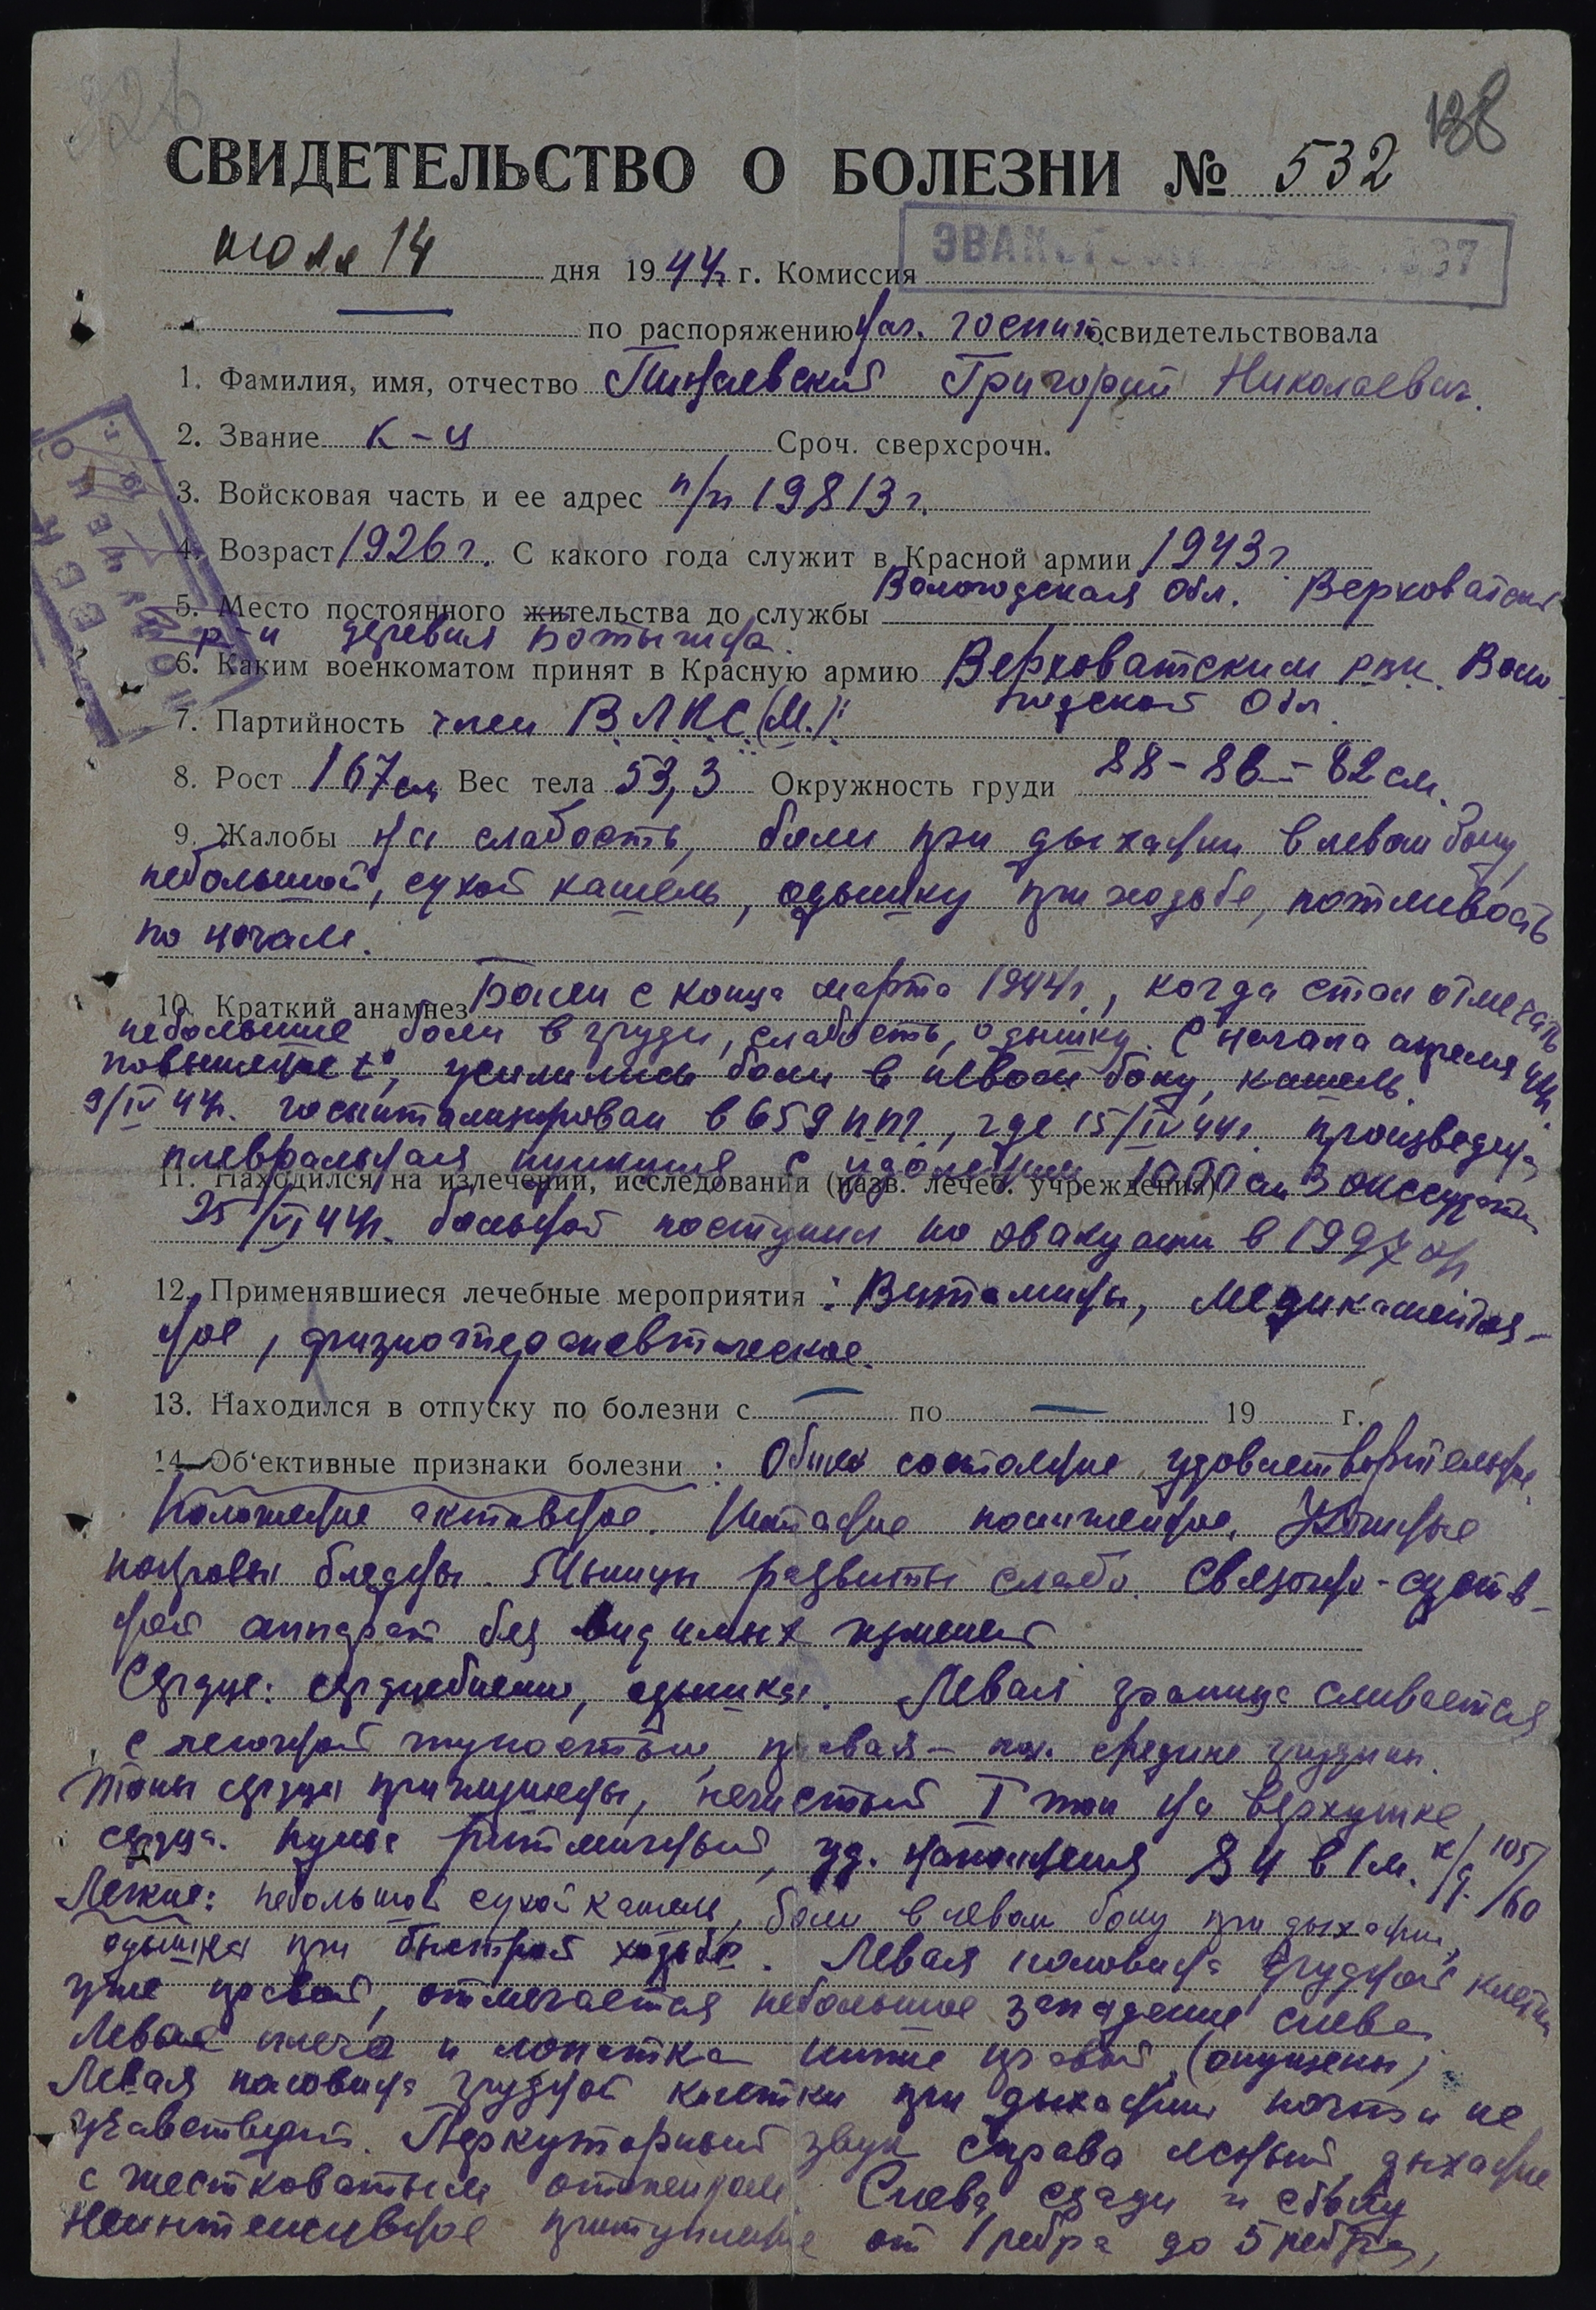 138
СВИДЕТЕЛЬСТВО О БОЛЕЗНИ № 532
июля 14 дня 1944 г. Комиссия
по распоряжению нач. госпит. освидетельствовала
1. Фамилия, имя, отчество Григорий Николаевич
2. Звание к-ц Сроч. сверхсрочн.
3. Войсковая часть и ее адрес п/п 19813 г.
4. Возраст 1926 г. С какого года служит в Красной армии 1943 г.
5. Место постоянного жительства до службы Вологодская обл. Верховатский
р-н деревня
6. Каким военкоматом принят в Красную армию Верховатским рвк. Воло-
годской Обл.
7. Партийность член В.Л.К.С.(М.):
8. Рост 167 см Вес тела 53,3 Окружность груди 88-86-82 см.
9. Жалобы на слабость, боли при дыхании в левом боку,
небольшой, сухой кашель, одышку при ходьбе, потливость
по ночам.
10. Краткий анамнез Болен с конца марта 1944 г., когда стал отмечать
небольшие боли в груди, слабость, одышку. С начала апреля 44г.
повышение t°, усилились боли в левом боку, кашель.
9/IV 44г. госпитализирован в 659 ппг., где 15/IV 44г. произведена
плевральная пункция с удалением 1000 см3 экссудата
11. Находился на излечении, исследовании (назв. лечеб. учреждения)
25/VI 44г. больной поступил по эвакуации в 1997 эг
12. Применявшиеся лечебные мероприятия: Витамины, медикаментоз-
ное, физиотерапевтическое.
13. Находился в отпуску по болезни с — по — 19 г.
14. Об‘ективные признаки болезни: Общее состояние удовлетворительное.
Положение активное. Питание пониженное. Кожные
покровы бледны. Мышцы развиты слабо. Связочно-сустав-
ной аппарат без видимых изменен
Сердце: сердцебиение, одышка. Левая граница сливается
с легочной тупостью, правая - по средине грудины.
Тоны сердца приглушены, нечистый I тон на верхушке
сердца. Пульс ритмичный, уд. наполнения 84 в 1 м. к/д. 105/60
Легкие: небольшой сухой кашель, боли в левом боку при дыхании,
одышка при быстрой ходьбе. Левая половина грудной клетки
уже правой, отмечается небольшое западение слева
Левое плечо и лопатка ниже правой (опущены),
Левая половина грудной клетки при дыхании почти не
участвует. Перкуторный звук справа ясный, дыхание
с жестковатым оттенком. Слева сзади и сбоку
неинтенсивное притупление от 1 ребра до 5 ребра,